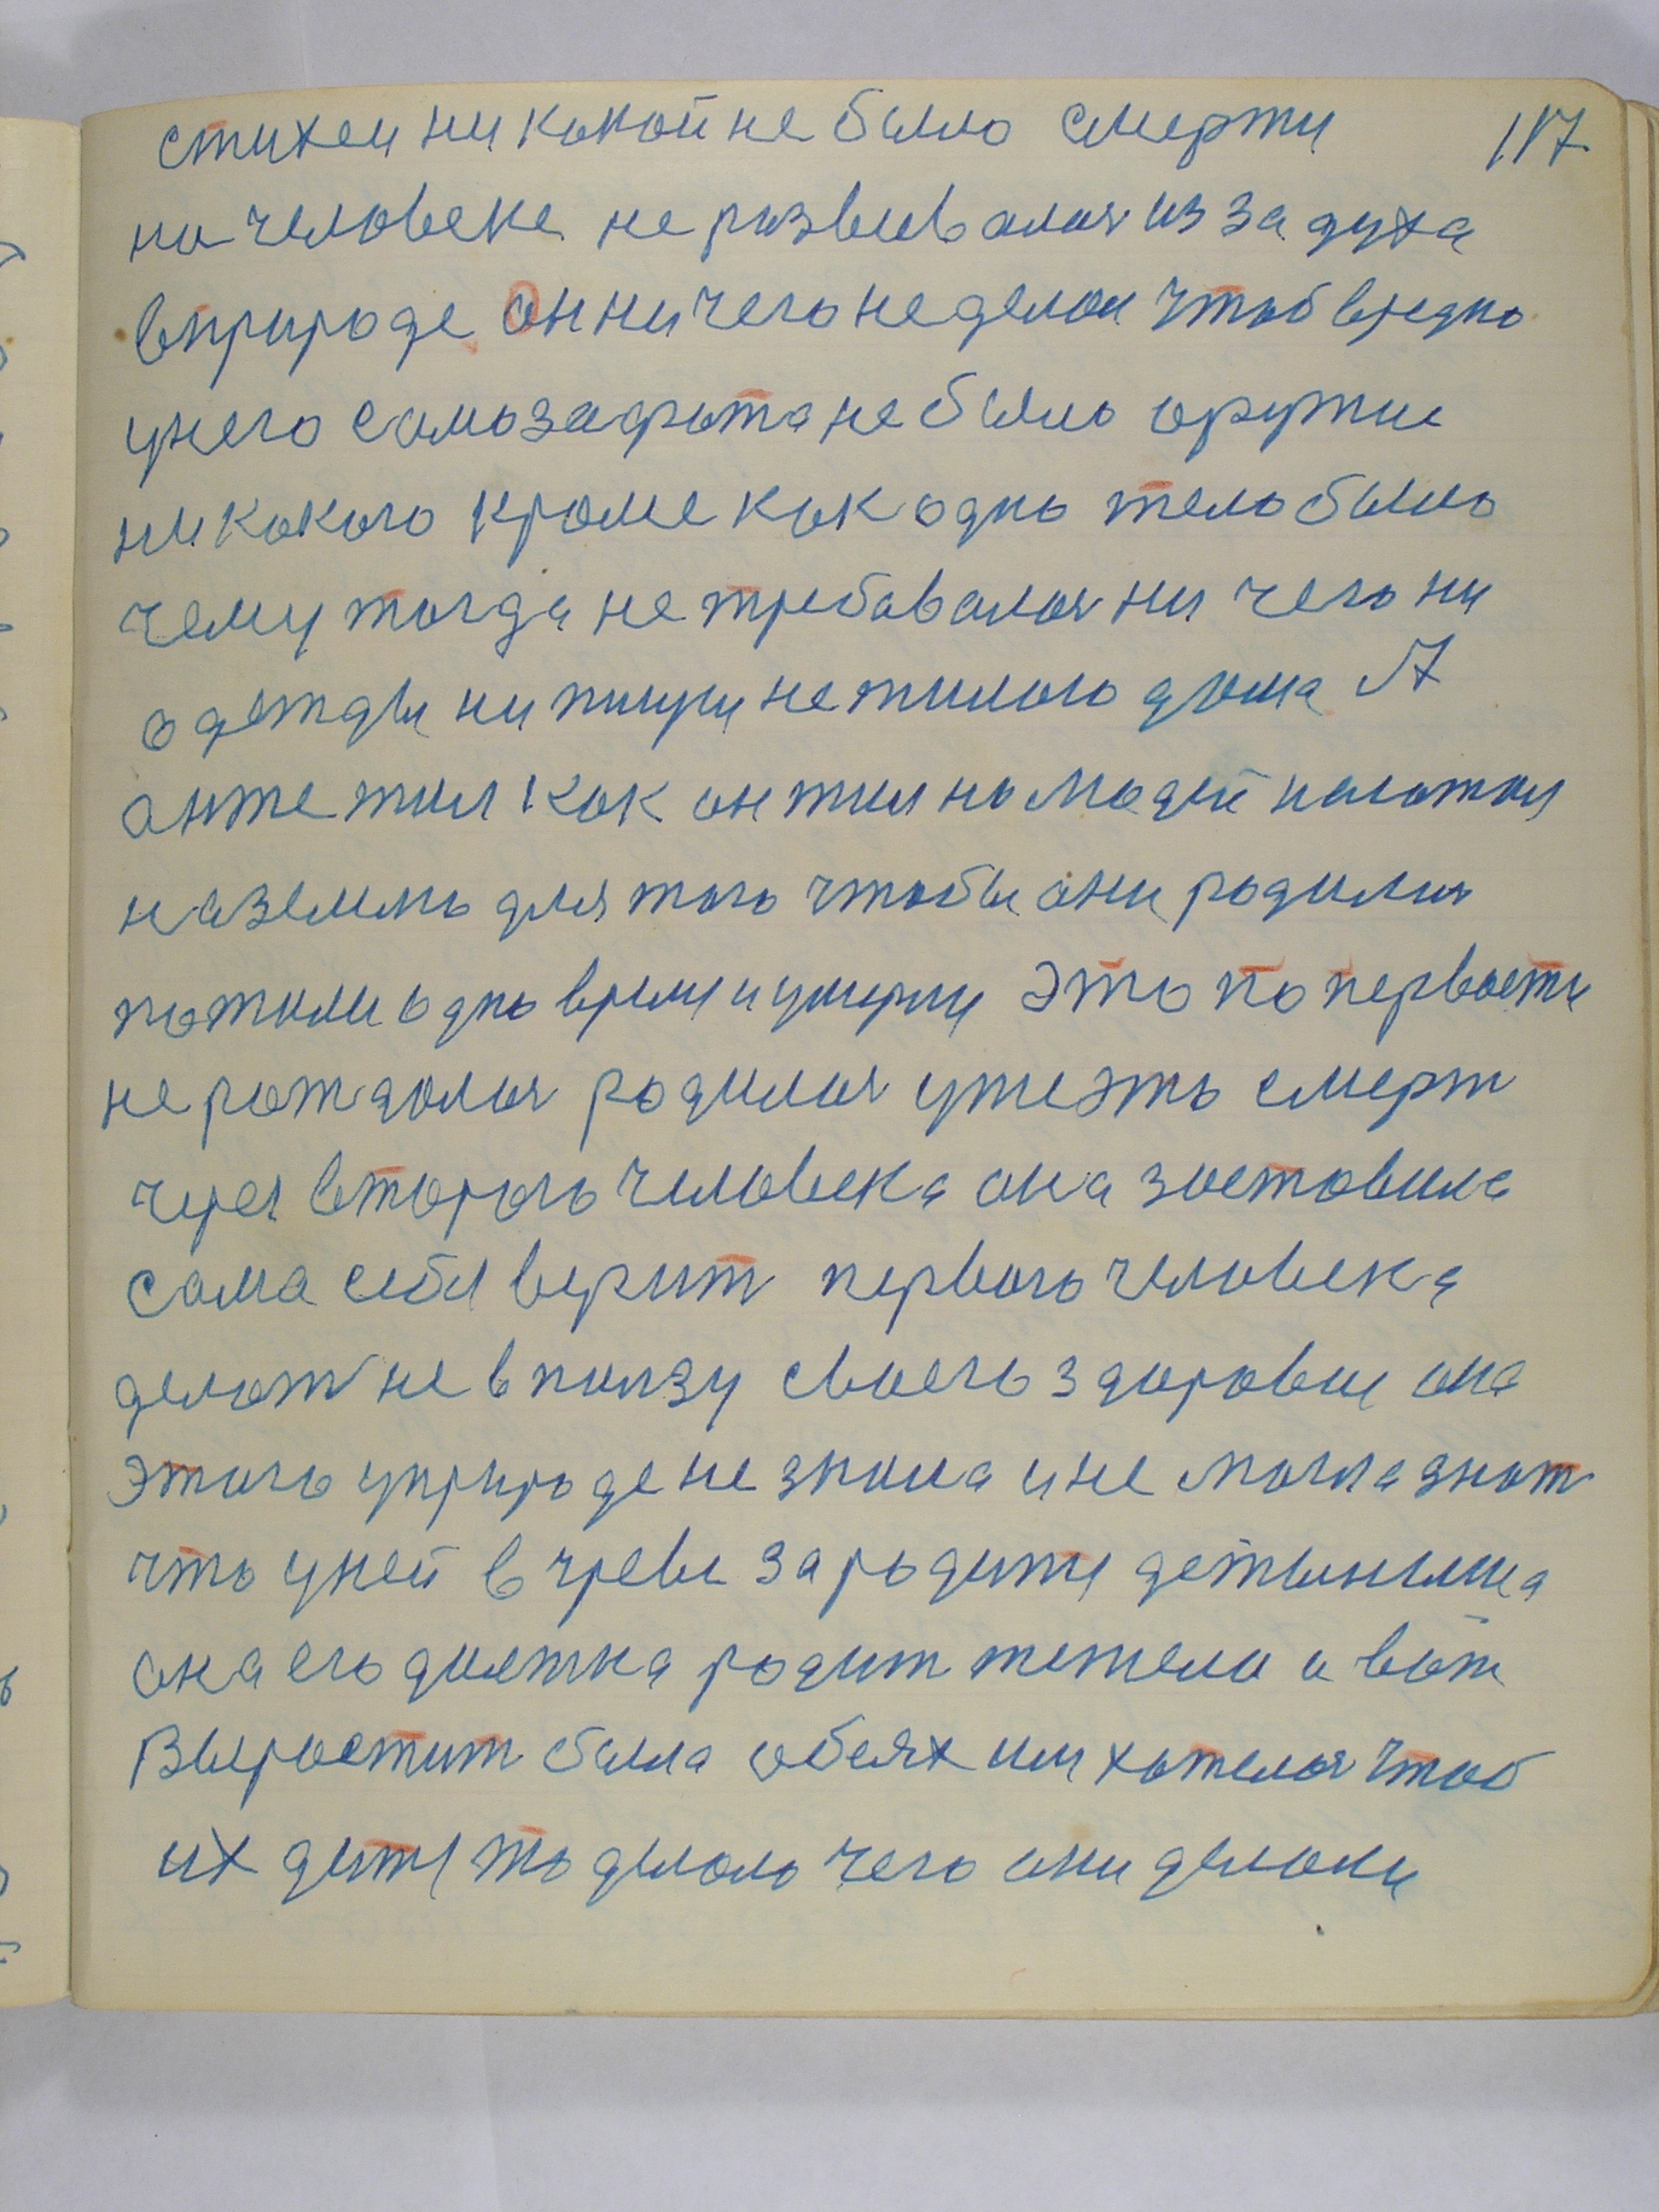 стихеи ни какой не было смерти 117
на человеке не развивалоя из за духа
в природе он ни чего не делал чтоб вредно
у него самозащита не было оружие
ни какого кроме как одно тело было
чему тогда не требавалоя ни чего ни
одежды ни пищи не жилого дома А
он же жил как он жил но людей положил
на землю для того чтобы они родились
пожили одно время и умерли это по первости
не рождалоя родилоя уже эта смерт
через второго человека она заставила
сама себя верит первого человека
делат не в ползу своего здоровие она
этого у природе не знала и не могла знат
что у ней в чреве зародити детыныша
она его должна родит тежело а вот
Выростит была обеях им хателоя чтоб
их дити то делало чего они делали